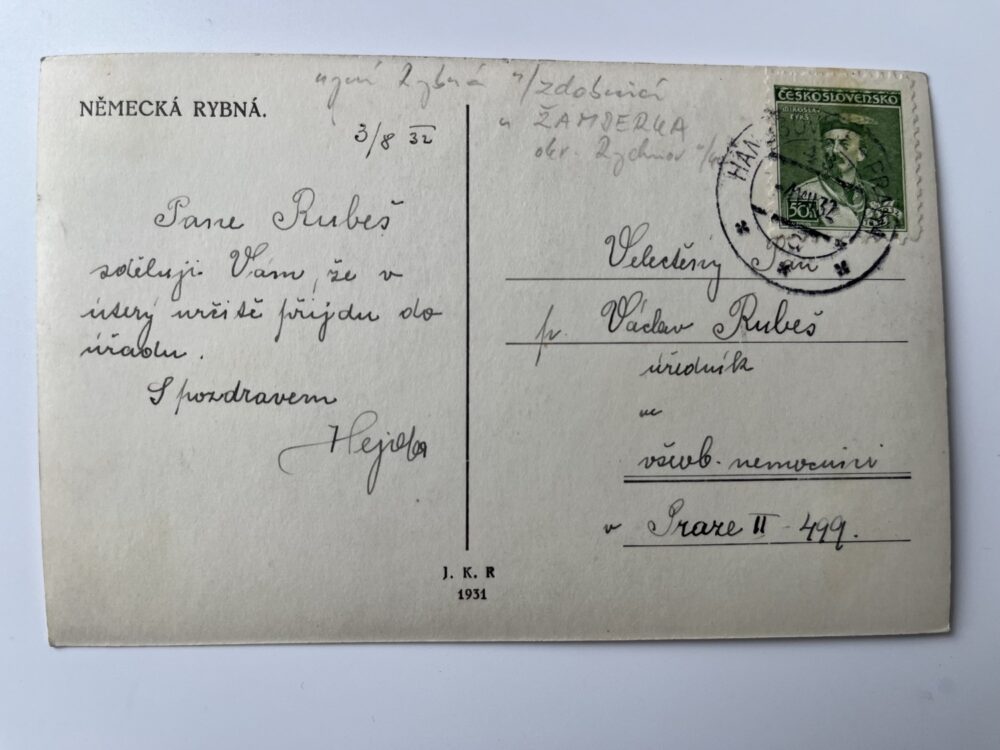 NĚMECKÁ RYBNÁ.
nyní Rybná n/zdobnicí
u ŽAMBERKA
okr. Rychnov
3/8 32
Pane Rubeš
sděluji Vám, že v
úterý určitě přijdu do
úřadu.
S pozdravem
Hejda
J. K. R
1931
ČESKOSLOVENSKO
MIROSLAV
TYRŠ
50h
Velectěný Pan
p. Václav Rubeš
úředník
ve
všeob. nemocnici
v Praze II - 499.